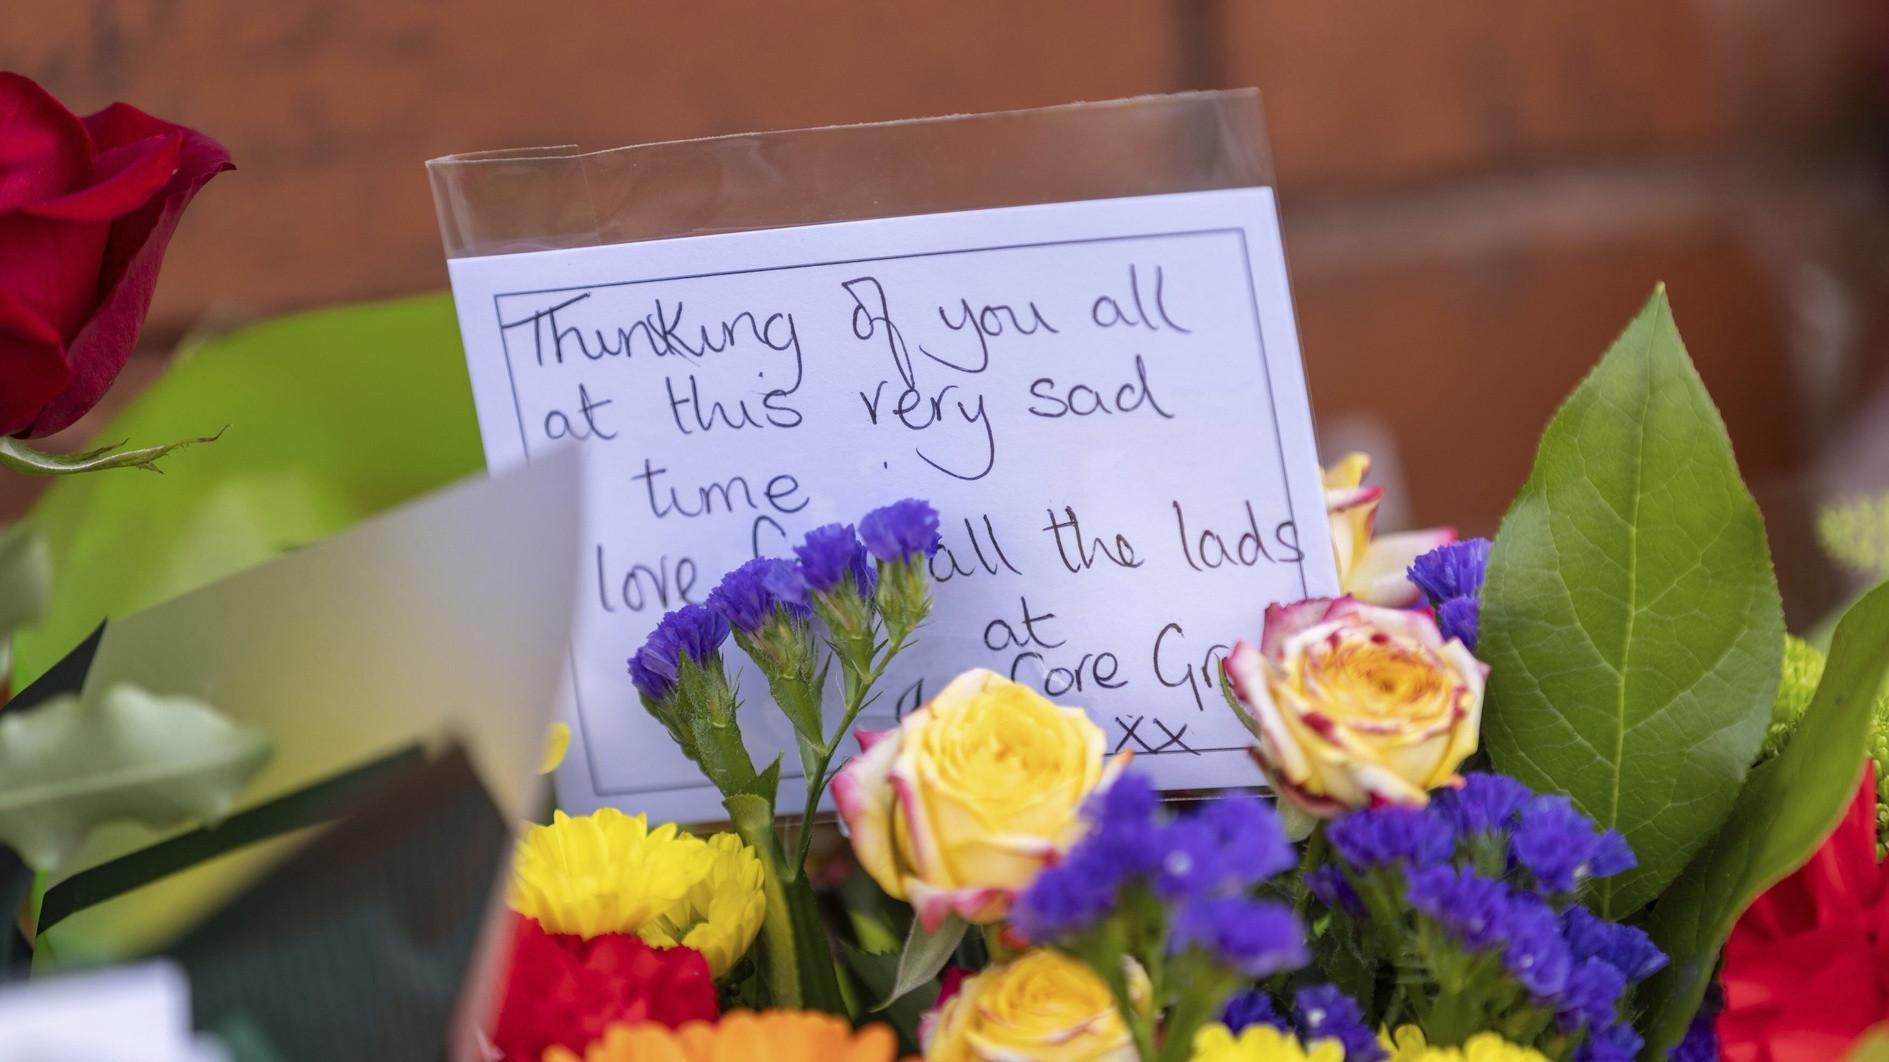 Thinking of you all
at this very sad
time
love all the lads
at
Core
xx